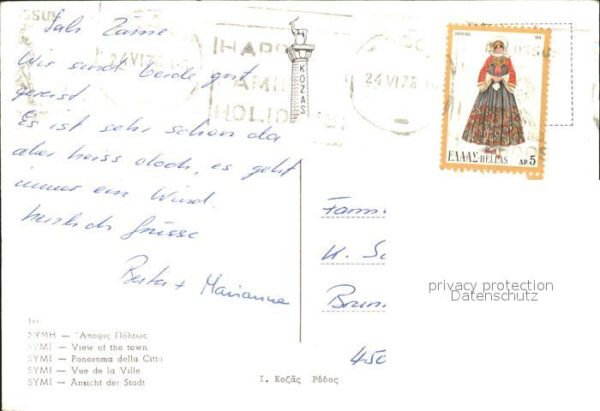 Sali Zäme
Wir sind beide gut
gereist.
Es ist sehr schön da
aber heiss doch, es geht
immer ein Wind.
herzlich Grüsse
Berta + Marianne
24 VI 78
HAPPY
FAMILY
HOLIDAYS
KOZAS
24 VI 78
ΕΛΛΑΣ-HELLAS ΔΡ 5
K. Sc
Brun
450
privacy protection
Datenschutz
ΣΥΜΗ — Ἄποψις Πόλεως
SYMI — View of the town
SYMI — Panorama della Città
SYMI — Vue de la Ville
SYMI — Ansicht der Stadt
Ι. Κοζᾶς Ρόδος